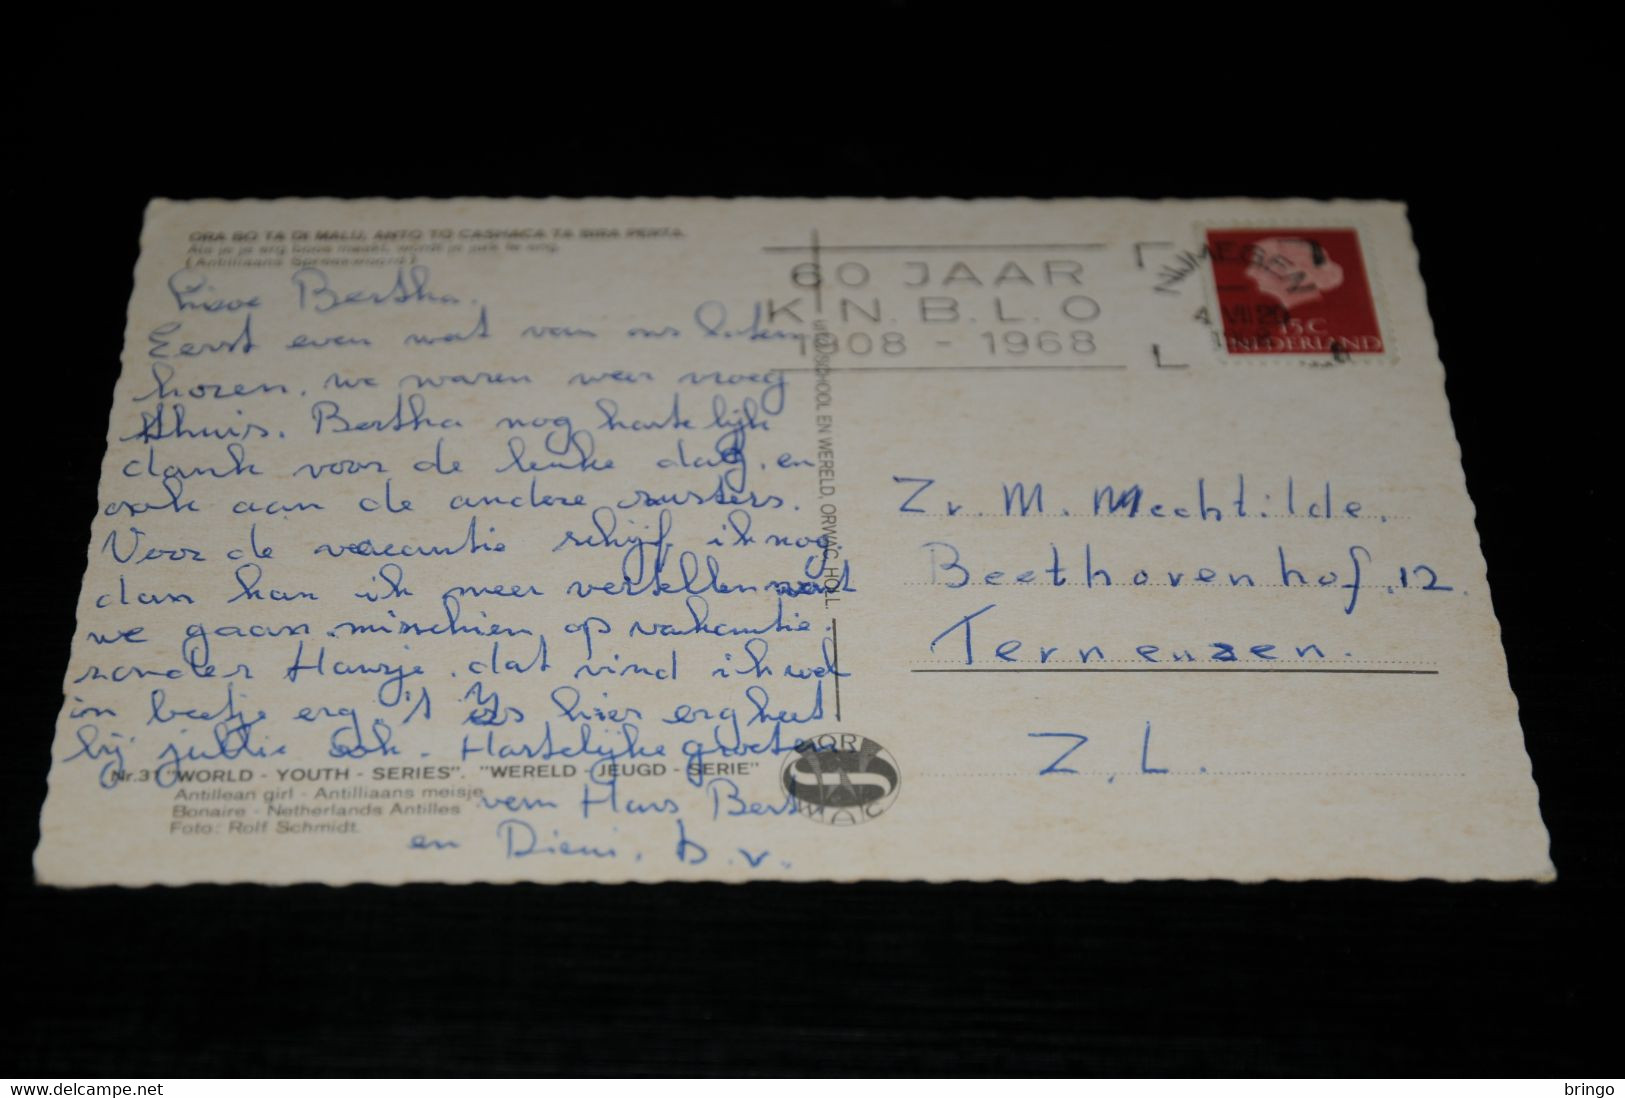 ORA BO TA DI MALU, ANTO TO CASHACA TA BIRA PERTA.
Als je je erg boos maakt, wordt je jurk te eng.
(Antilliaans Spreekwoord)
Lieve Bertha.
Eerst even wat van ons laten
horen, we waren weer vroeg
thuis. Bertha nog hartelijk
dank voor de leuke dag, en
ook aan de andere zusters.
Voor de vacantie schijf ik nog
dan kan ik meer vertellen want
we gaan misschien op vakantie.
zonder Hansje. dat vind ik wel
in beetje erg. 't is hier erg heet
bij jullie ook. Hartelijke groeten
van Hans Bert
en Dieni. b.v.
Nr.31 "WORLD - YOUTH - SERIES". "WERELD - JEUGD - SERIE"
Antillean girl - Antilliaans meisje
Bonaire - Netherlands Antilles
Foto: Rolf Schmidt.
SCHOOL EN WERELD, ORWAC HOLL.
60 JAAR
K.N.B.L.O
1908 - 1968
NIJMEGEN
4 VII 20
NEDERLAND
Zr. M. Mechtilde.
Beethovenhof. 12.
Terneuzen.
Z.L.
delcampe.net
bringo